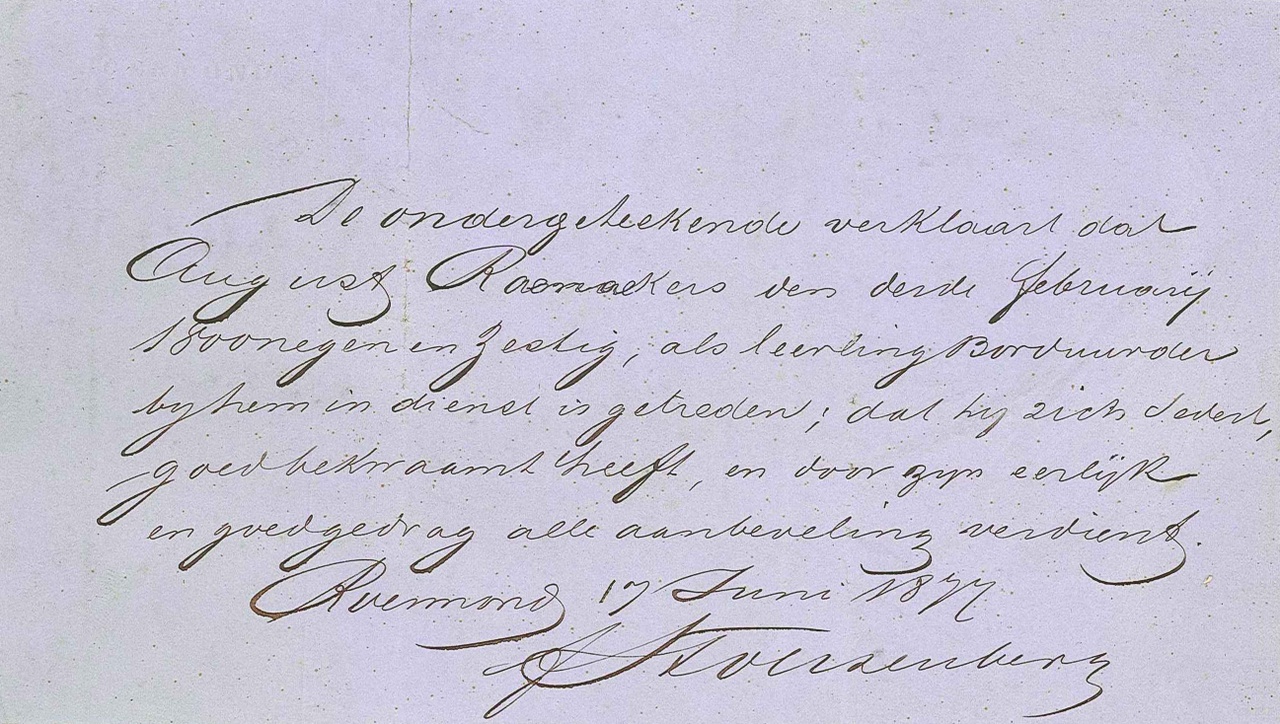 De ondergeteekende verklaart dat
August Raemaekers den derde februarij
1800negen en Zestig, als leerling Borduurder
by hem in dienst is getreden; dat hy zich sedert,
goed bekwaamt heeft, en door zyn eerlijk
en goed gedrag alle aanbeveling verdient.
Roermond 17 Juni 1877
F Stoltzenberg